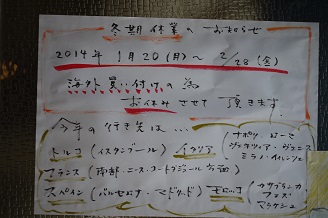 冬期休業のお知らせ
2014年 1月20(月)～2/28(金)
海外買い付けの為
お休みさせて頂きます
今年の行き先は…
トルコ(イスタンブール) イタリア(ナポリ・ローマ
ヴェネツィア・ヴェローナ
ミラノ・フィレンツェ
フランス(南部・ニース・コートダジュール方面)
スペイン(バルセロナ・マドリッド) モロッコ(カサブランカ
フェズ
マラケシュ